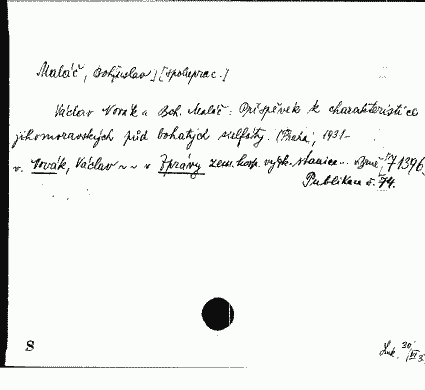 Maláč, Bohuslav, [spoluprac.]
Václav Novák a Boh. Maláč: Příspěvek k charakteristice
jihomoravských půd bohatých sulfáty. (Praha, 1931-
v. Novák, Václav ~ ~ v Zprávy zem. hosp. výzk. stanice... v Brně 71396
Publikace č. 74.
8
Luk. 30